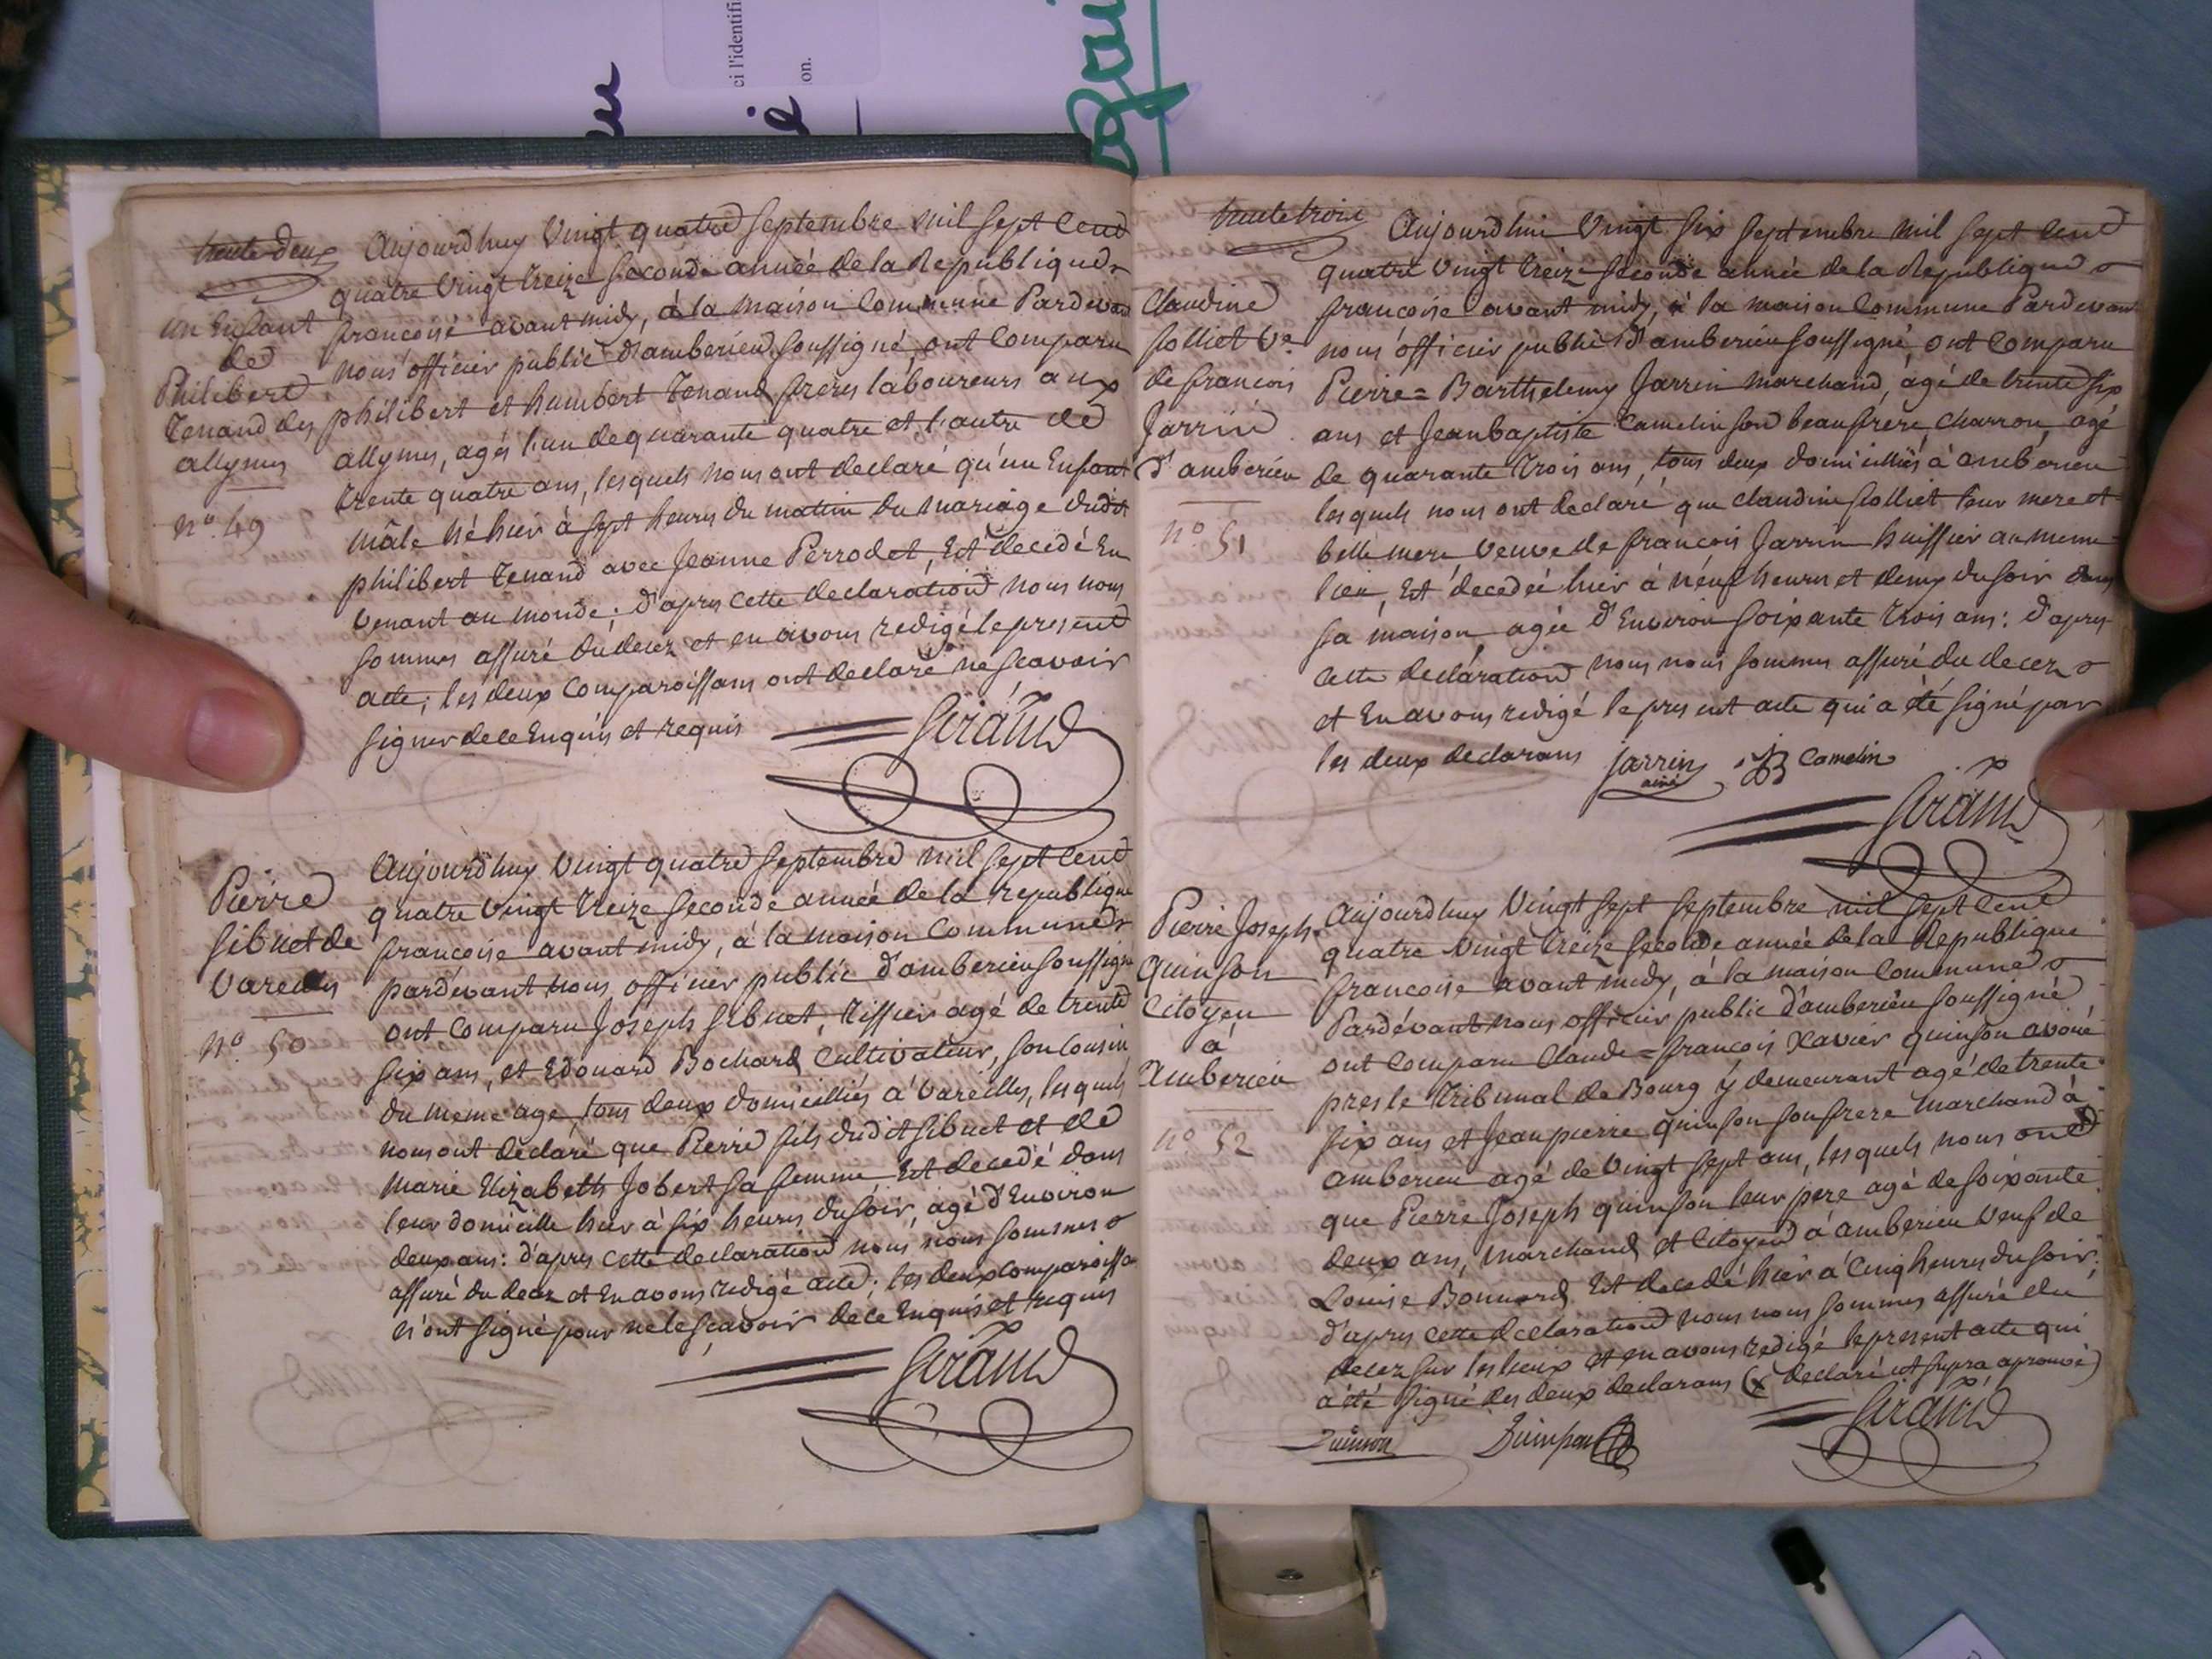 ci l'identifi
on.
trente deux
un Enfant
de
Philibert
Tenand des
allymes
n.° 49
Aujourdhuy Vingt quatre septembre mil sept Cent
quatre Vingt treize seconde année de la Republique
francoise avant midy, à la maison Commune Pardevant
nous officier public d'amberieu soussigné, ont Comparu
philibert et humbert Tenand freres laboureurs aux
allymes, agés l'un de quarante quatre et l'autre de
trente quatre ans, lesquels nous ont declaré qu'un Enfant
mâle né hier à sept heures du matin du mariage dudit
philibert Tenand avec Jeanne Perrodet, Est decedé En
Venant au monde; d'apres cette declaration nous nous
sommes assuré du decez et en avons redigé le present
acte; les deux Comparoissans ont declaré ne scavoir
signer de ce Enquis et requis
Giraud
Pierre
Sibuet de
Vareilles
N.° 50
Aujourdhuy Vingt quatre septembre mil sept Cent
quatre Vingt treize seconde année de la republique
francoise avant midy, à la maison Commune
pardevant nous officier public d'amberieu soussigné
ont Comparu Joseph Sibuet, Tissier agé de trente
six ans, et Edouard Bochard Cultivateur, son Cousin
du meme age, tous deux domiciliés à Vareilles, lesquels
nous ont declaré que Pierre fils dudit Sibuet et de
Marie Elizabeth Jobert sa femme, Est decedé dans
leur domicille hier à six heures du soir, agé d'Environ
deux ans: d'apres cette declaration nous nous sommes
assuré du decez et En avons redigé acte; les deux comparoissans
n'ont signé pour ne le scavoir de ce Enquis et requis
Giraud
trente trois
Claudine
Solliet Ve.
de francois
Jarrin
d'amberieu
N.° 51
Aujourdhui Vingt six septembre mil sept Cent
quatre Vingt treize seconde année de la Republique
francoise avant midy, à la maison Commune Pardevant
nous officier public d'amberieu soussigné, ont Comparu
Pierre=Barthelemy Jarrin Marchand, agé de trente six
ans et Jean baptiste Camelin son beau frere, Charron, agé
de quarante trois ans, tous deux domiciliés à amberieu
lesquels nous ont declaré que Claudine Solliet leur mere et
belle mere, Veuve de francois Jarrin huissier au meme
lieu, Est decedée hier à neuf heures et demy du soir dans
sa maison, agée d'Environ soixante trois ans: d'apres
cette declaration nous nous sommes assuré du decez
et En avons redigé le present acte qui a été signé par
les deux declarans Jarrin JB Camelin
ainé
Giraud
Pierre Joseph
Quinson
Citoyen
à
Amberieu
N.° 52
Aujourdhuy Vingt sept septembre mil sept Cent
quatre Vingt treize seconde année de la Republique
francoise avant midy, à la maison Commune
Pardevant nous officier public d'amberieu soussigné
ont Comparu Claude=francois Xavier quinson avoué
pres le Tribunal de Bourg y demeurant agé de trente
six ans et Jean pierre quinson son frere Marchand à
amberieu agé de Vingt sept ans, lesquels nous ont
que Pierre Joseph quinson leur pere agé de soixante
deux ans, Marchand et Citoyen à amberieu Veuf de
Louise Bonnard Est decedé hier à Cinq heures du soir;
d'apres cette declaration nous nous sommes assuré du
decez sur les lieux et en avons redigé le present acte qui
a été signé des deux declarans (x declaré ut supra aprouvé)
Quinson Quinson Giraud